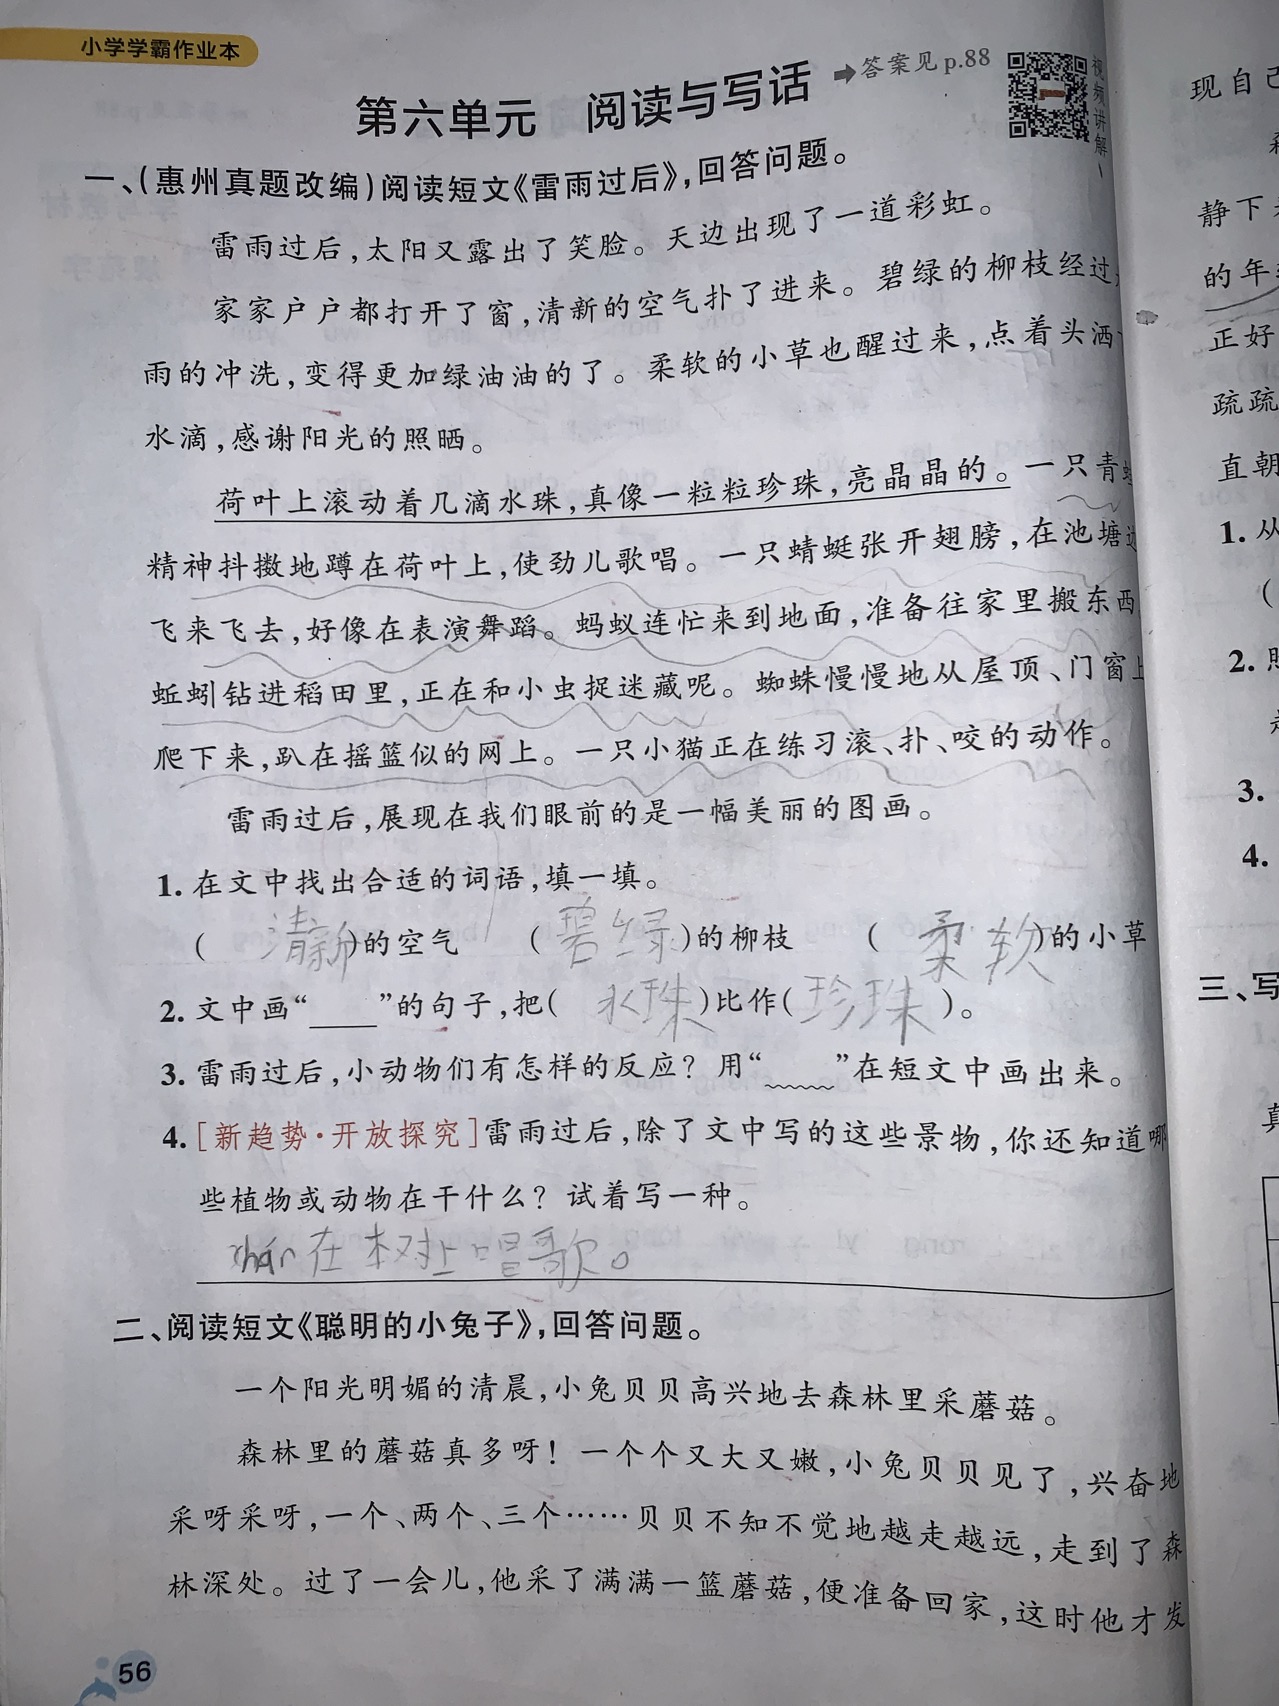 小学学霸作业本
第六单元　阅读与写话
➡答案见p.88
视频讲解
一、(惠州真题改编)阅读短文《雷雨过后》,回答问题。
雷雨过后,太阳又露出了笑脸。天边出现了一道彩虹。
家家户户都打开了窗,清新的空气扑了进来。碧绿的柳枝经过
雨的冲洗,变得更加绿油油的了。柔软的小草也醒过来,点着头洒
水滴,感谢阳光的照晒。
荷叶上滚动着几滴水珠,真像一粒粒珍珠,亮晶晶的。一只青
精神抖擞地蹲在荷叶上,使劲儿歌唱。一只蜻蜓张开翅膀,在池塘
飞来飞去,好像在表演舞蹈。蚂蚁连忙来到地面,准备往家里搬东西
蚯蚓钻进稻田里,正在和小虫捉迷藏呢。蜘蛛慢慢地从屋顶、门窗上
爬下来,趴在摇篮似的网上。一只小猫正在练习滚、扑、咬的动作。
雷雨过后,展现在我们眼前的是一幅美丽的图画。
1. 在文中找出合适的词语,填一填。
(清新)的空气　(碧绿)的柳枝　(柔软)的小草
2. 文中画“____”的句子,把(水珠)比作(珍珠)。
3. 雷雨过后,小动物们有怎样的反应？用“﹏﹏”在短文中画出来。
4. [新趋势·开放探究]雷雨过后,除了文中写的这些景物,你还知道哪
些植物或动物在干什么？试着写一种。
chán在树上唱歌。
二、阅读短文《聪明的小兔子》,回答问题。
一个阳光明媚的清晨,小兔贝贝高兴地去森林里采蘑菇。
森林里的蘑菇真多呀！一个个又大又嫩,小兔贝贝见了,兴奋地
采呀采呀,一个、两个、三个……贝贝不知不觉地越走越远,走到了森
林深处。过了一会儿,他采了满满一篮蘑菇,便准备回家,这时他才发
56
现自己
静下
的年
正好
疏疏
直朝
1. 从
(
2.
3.
4.
三、写